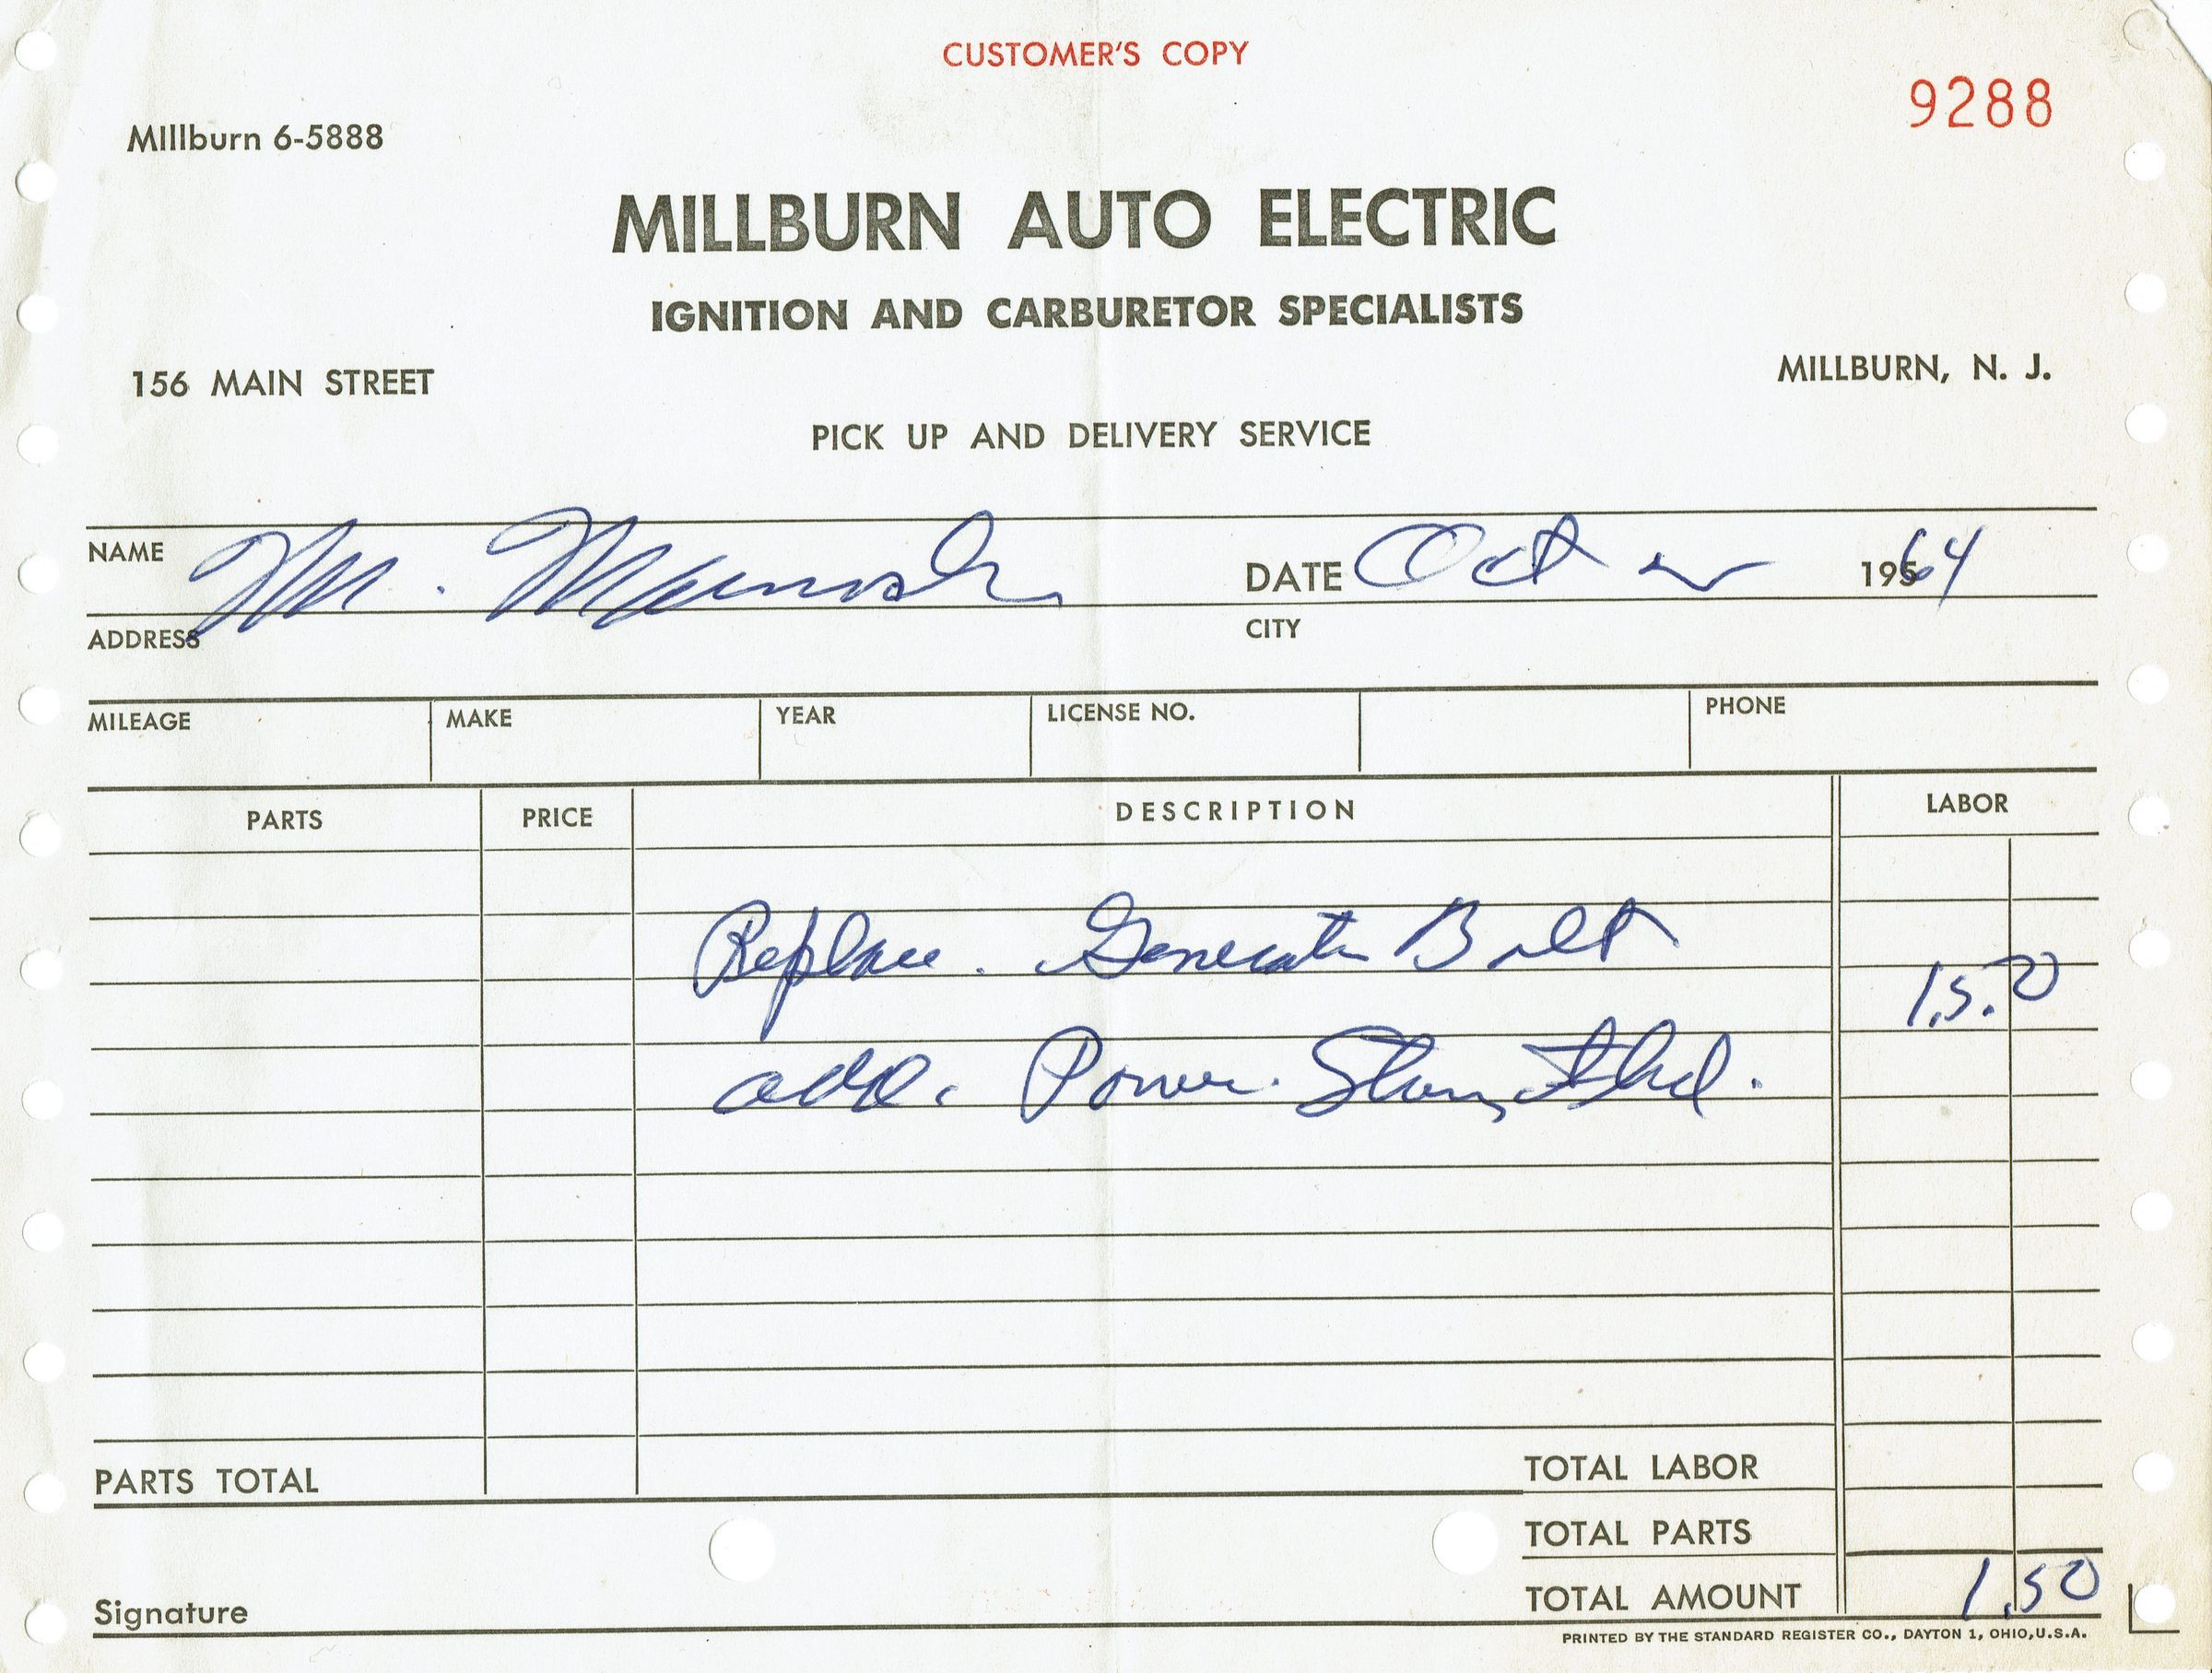 CUSTOMER'S COPY
9288
Millburn 6-5888
MILLBURN AUTO ELECTRIC
IGNITION AND CARBURETOR SPECIALISTS
156 MAIN STREET MILLBURN, N. J.
PICK UP AND DELIVERY SERVICE
NAME M. DATE Oct 1964
ADDRESS CITY
MILEAGE MAKE YEAR LICENSE NO. PHONE
PARTS PRICE DESCRIPTION LABOR
Replace Generator Bolt
1.50
add. Power
PARTS TOTAL TOTAL LABOR
TOTAL PARTS
TOTAL AMOUNT 1.50
Signature
PRINTED BY THE STANDARD REGISTER CO., DAYTON 1, OHIO, U.S.A.